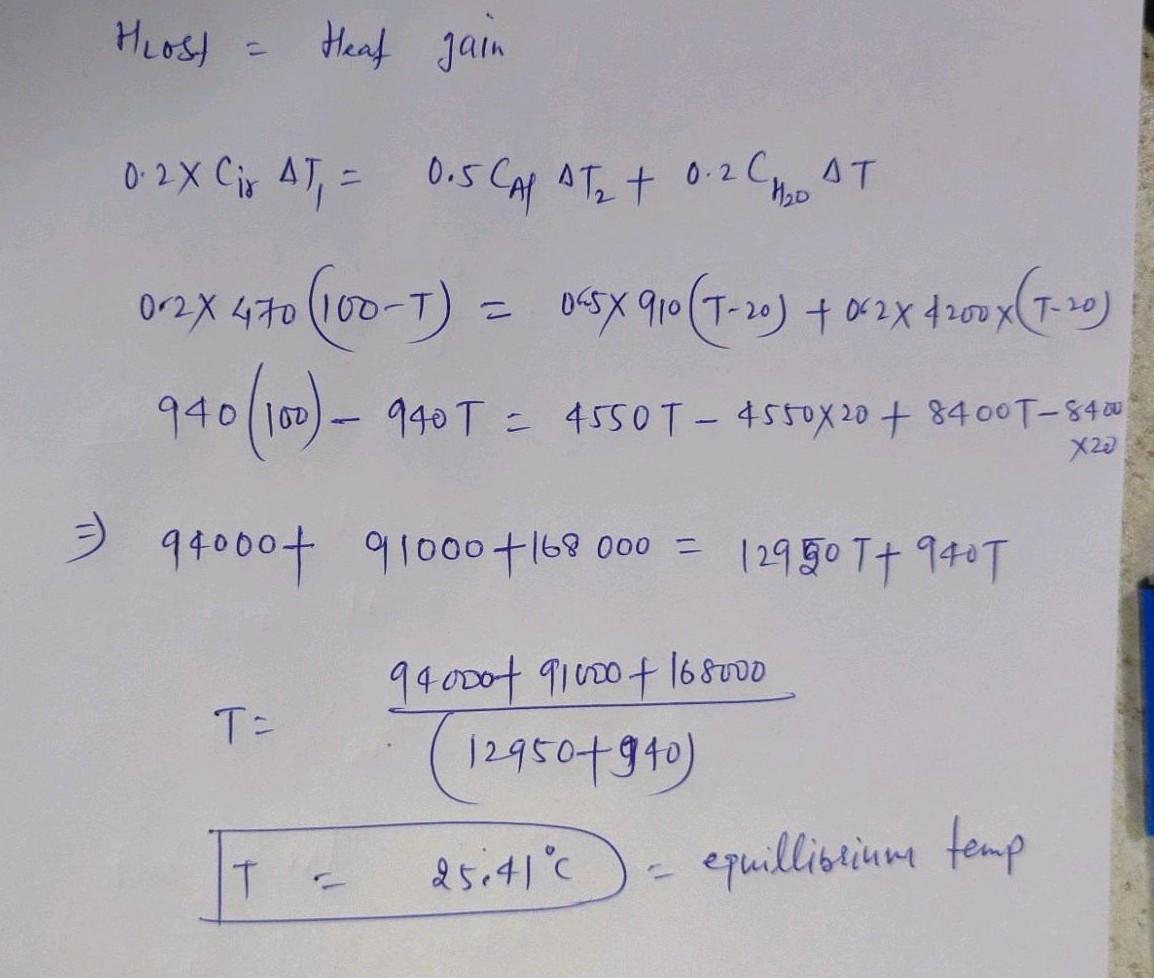 HLost = Heat gain
0.2 X Cir ΔT₁ = 0.5 CAl ΔT₂ + 0.2 CH₂O ΔT
0.2X 470 (100-T) = 0.5X 910 (T-20) + 0.2X 4200 X (T-20)
940 (100) - 940 T = 4550 T - 4550X20 + 8400T - 8400
X20
⇒ 94000 + 91000 + 168 000 = 12950 T + 940T
94000 + 91000 + 168000
T =
(12950 + 940)
T = 25.41°C = equillibrium temp